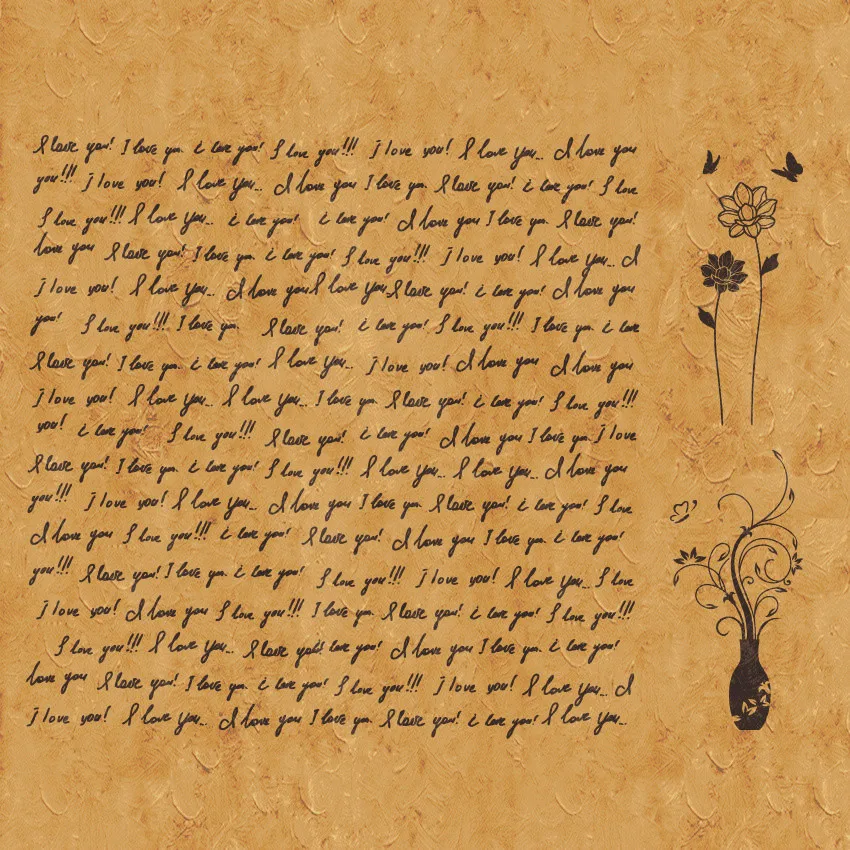 I love you! I love you. i love you! I love you!!! I love you! I love you... I love you
you!!! I love you! I love you... I love you I love you. I love you! i love you! I love
I love you!!! I love you... i love you! i love you! I love you I love you. I love you!
love you I love you! I love you. i love you! I love you!!! I love you! I love you... I
I love you! I love you... I love you I love you... I love you! i love you! I love you
you! I love you!!! I love you. I love you! i love you! I love you!!! I love you. i love
I love you! I love you. i love you! I love you... I love you! I love you I love you
I love you! I love you... I love you... I love you. I love you! i love you! I love you!!!
you! i love you! I love you!!! I love you! i love you! I love you I love you. I love
I love you! I love you. i love you! I love you!!! I love you... I love you... I love you
you!!! I love you! I love you... I love you I love you. I love you! i love you! I love
I love you I love you!!! i love you! I love you! I love you I love you. i love you!
you!!! I love you! I love you. i love you! I love you!!! I love you! I love you... I love
I love you! I love you I love you!!! I love you. I love you! i love you! I love you!!!
I love you!!! I love you... I love you! i love you! I love you I love you. i love you!
love you I love you! I love you. i love you! I love you!!! I love you! I love you... I
I love you! I love you... I love you I love you. I love you! i love you! I love you...